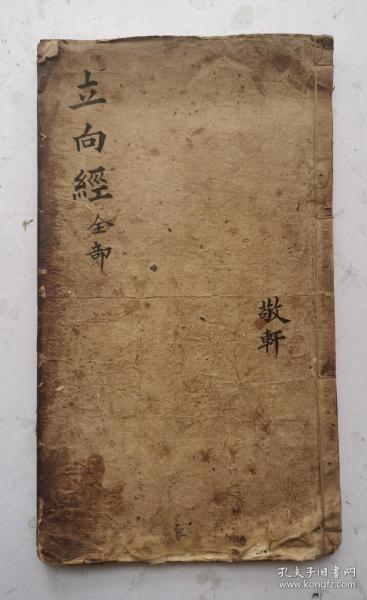 立向經全部
敬軒
孔夫子旧书网
www.kongfz.com